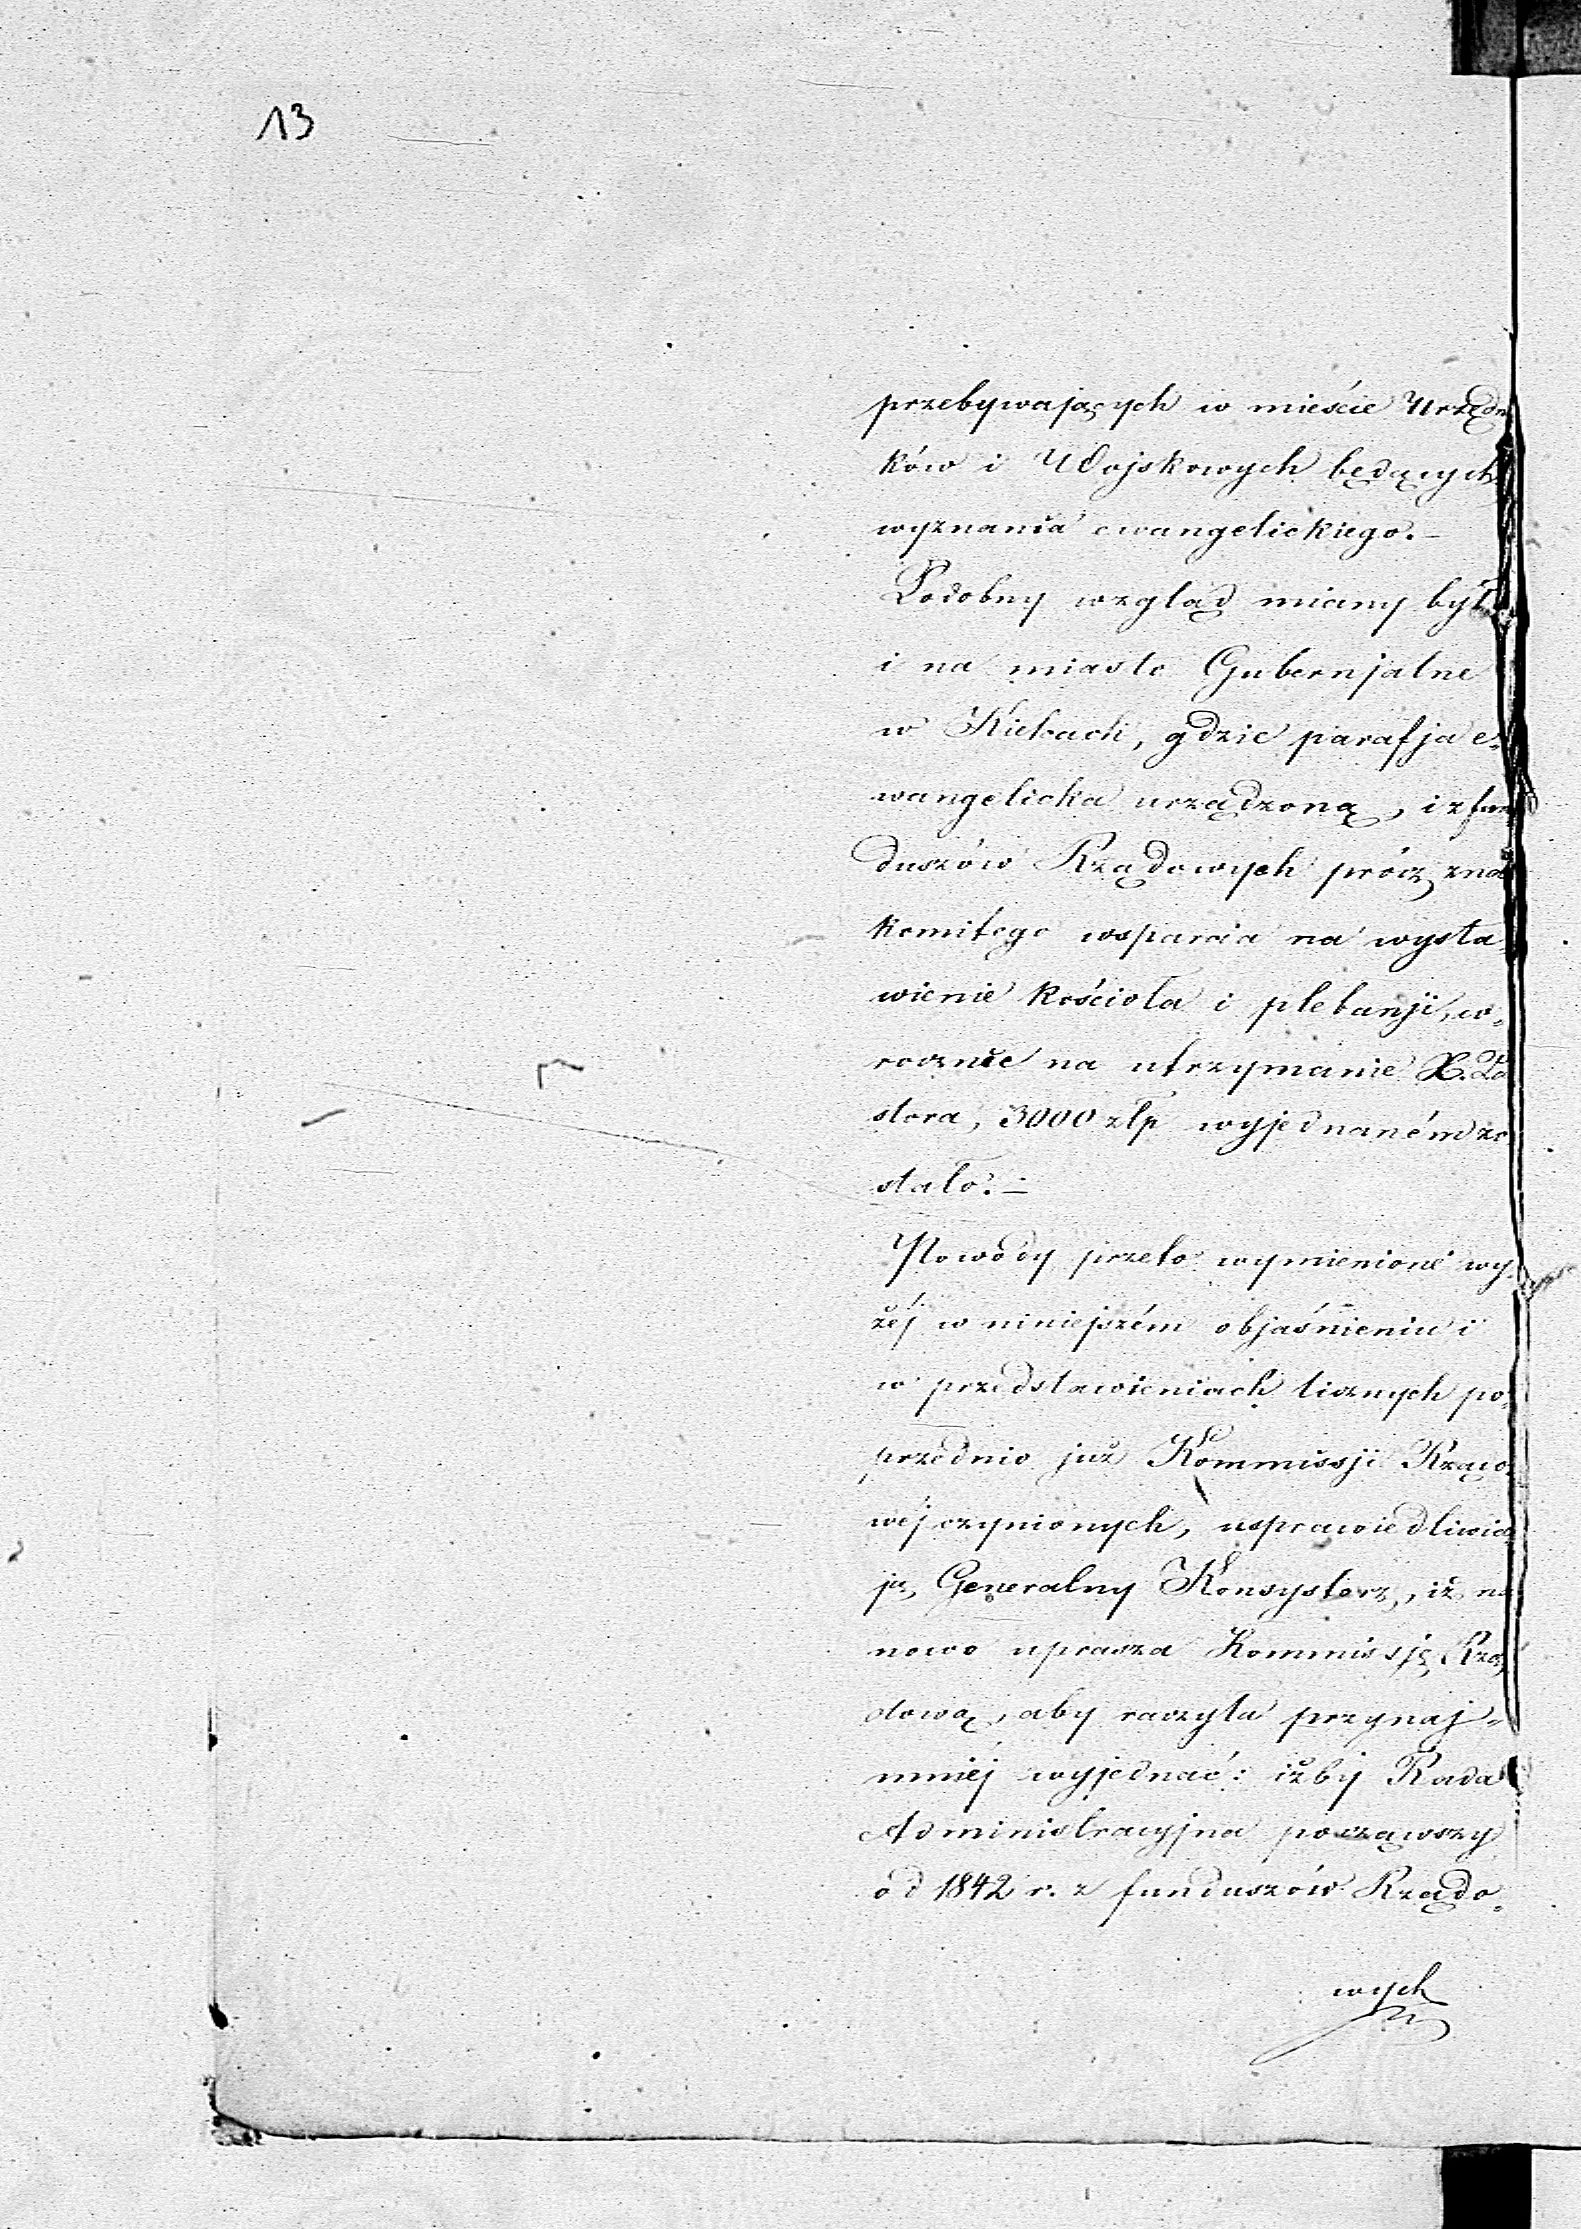 13
przebywających w mieście Urzędn
ków i Wojskowych będących
wyznania ewangelickiego. —
Podobny wzgląd miany był
i na miasto Gubernjalne
w Kielcach, gdzie parafja e-
wangelicka urządzoną, i z fun
duszów Rządowych prócz zna
komitego wsparcia na wysta-
wienie kościoła i plebanji, co-
rocznie na utrzymanie X. Pa
stora, 3000 złp wyjednaném zo
stało. —
Powody przeto wymienione wy-
żéj w niniejszém objaśnieniu i
w przedstawieniach licznych po-
przednio już Kommissji Rządo-
wéj czynionych, usprawiedliwia
ją Generalny Konsystorz, iż na
nowo uprasza Kommissję Rzą
dową, aby raczyła przynaj-
mniéj wyjednać: iżby Rada
Administracyjna począwszy
od 1842 r. z funduszów Rządo-
wych